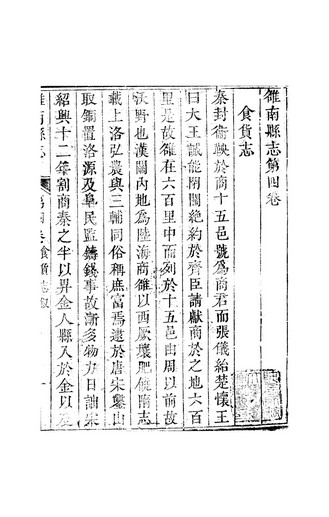 雒南縣志第四卷
食貨志
秦封衞鞅於商十五邑號爲商君而張儀紿楚懷王
曰大王誠能閉關絶約於齊臣請獻商於之地六百
里是故雒在六百里中而列於十五邑由周以前故
沃野也漢關內地爲陸海商雒以西厥壤肥饒隋志
載上洛弘農與三輔同俗稱庶富焉逮於唐宋鑿山
取銅置洛源及阜民監鑄錢事故漸多物力日詘宋
紹興十二年割商秦之半以畀金人縣入於金以及
雒南縣志
第四卷食貨志叙